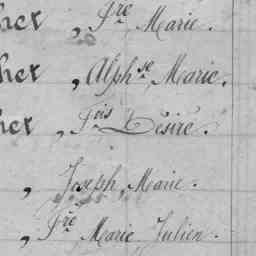 her , Jre Marie.
her , Alphse Marie.
her , Fois Désiré.
, Joseph Marie.
, Fre Marie Julien.